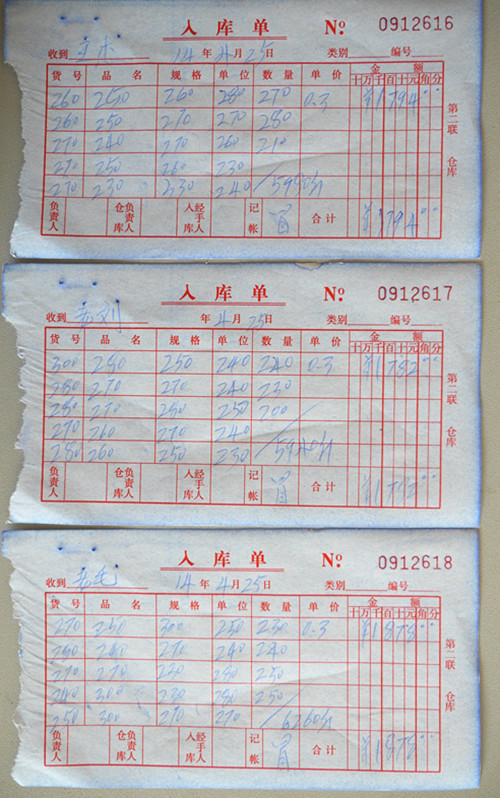 入库单 № 0912616
收到 王木 14年4月25日 类别 编号
货号 品名 规格 单位 数量 单价 金额
十万千百十元角分
260 250 260 280 270 0.3 ¥179400
260 250 270 270 280
270 240 270 260 210
270 250 260 230
270 230 230 240 / 5980斤
负责人 仓库负责人 入库经手人 记帐 合计 ¥179400
第二联 仓库
入库单 № 0912617
收到 年4月25日 类别 编号
货号 品名 规格 单位 数量 单价 金额
十万千百十元角分
300 250 250 240 240 0.3 ¥178200
280 270 270 240 230
280 270 280 250 200
270 260 270 240
280 260 250 230 / 5940斤
负责人 仓库负责人 入库经手人 记帐 合计 ¥178200
第二联 仓库
入库单 № 0912618
收到 14年4月25日 类别 编号
货号 品名 规格 单位 数量 单价 金额
十万千百十元角分
270 250 300 250 230 0.3 ¥187800
280 260 270 240 240
270 270 220 280 250
240 300 220 280 250
250 300 270 270 / 6260斤
负责人 仓库负责人 入库经手人 记帐 合计 ¥187800
第二联 仓库